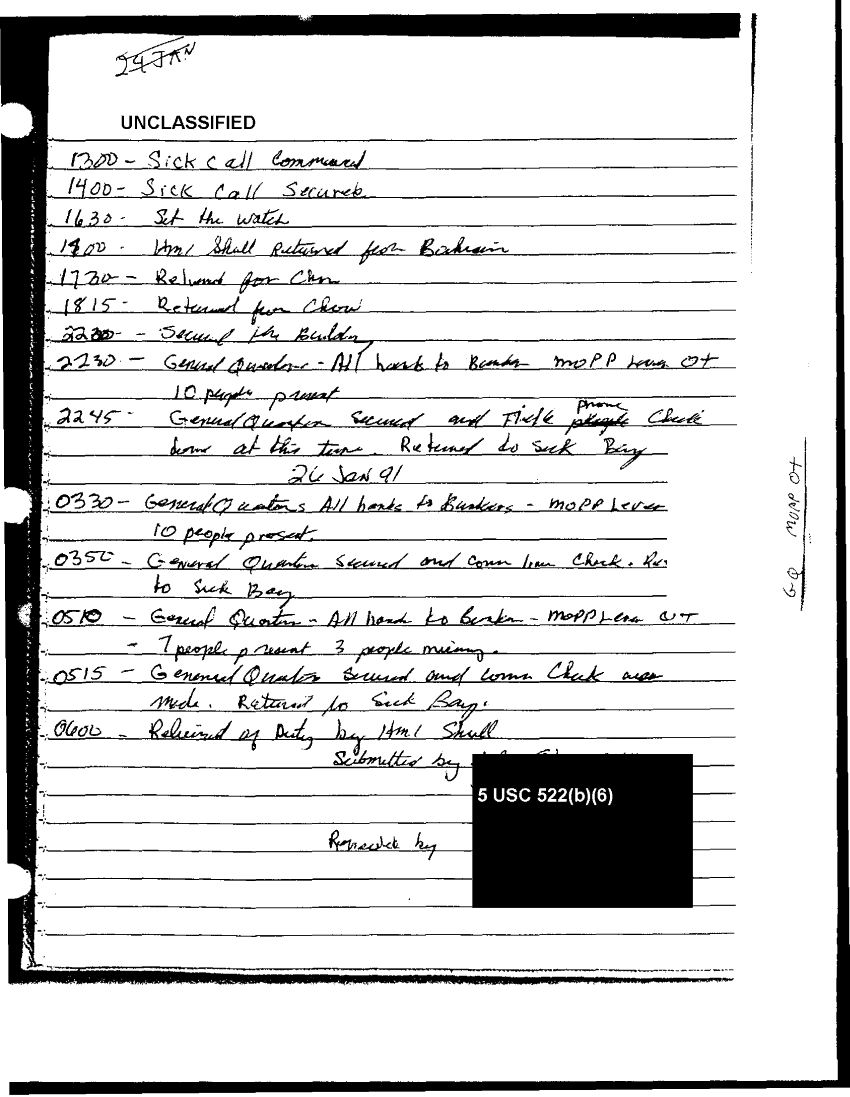 24 JAN
UNCLASSIFIED
1300 - Sick Call Commenced
1400 - Sick Call Secured
1630 - Set the watch
1900 - HM1 Shull Returned from Bahrain
1730 - Relieved for Chow
1815 - Returned from Chow
2200 - Secured the Building
2230 - General Quarters - All hands to Bunker MOPP Level OT
10 people present
phone
2245 - General Quarters Secured and Field people Check
done at this time. Returned to Sick Bay
26 Jan 91
0330 - General Quarters All hands to Bunkers - MOPP Level
10 people present.
0350 - General Quarters Secured and comm line Check. Re
to Sick Bay
0510 - General Quarters - All hands to Bunker - MOPP Level OT
- 7 people present 3 people missing.
0515 - General Quarters Secured and comm Check was
made. Returned to Sick Bay.
0600 - Relieved of Duty by HM1 Shull
Submitted by
5 USC 522(b)(6)
by
GQ MOPP OT